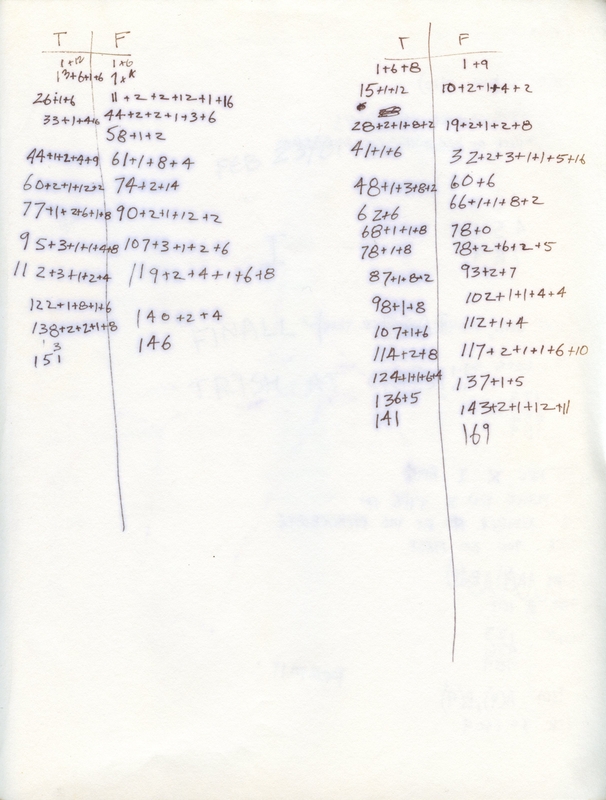 T F
1+12 1+6
13+6+1+6
26+1+6 11+2+2+12+1+16
33+1+4+6 44+2+2+1+3+6
58+1+2
44+1+2+4+9 61+1+8+4
60+2+1+12+2 74+2+14
77+1+2+6+1+8 90+2+1+12+2
95+3+1+1+4+8 107+3+1+2+6
112+3+1+2+4 119+2+4+1+6+8
122+1+8+1+6 140+2+4
138+2+2+1+8 146
151
T F
1+6+8 1+9
15+1+12 10+2+1+4+2
28+2+1+8+2 19+2+1+2+8
41+1+6 32+2+3+1+1+5+16
48+1+3+8+2 60+6
62+6 66+1+1+8+2
68+1+1+8 78+0
78+1+8 78+2+6+2+5
87+1+8+2 93+2+7
98+1+8 102+1+1+4+4
107+1+6 112+1+4
114+2+8 117+2+1+1+6+10
124+1+1+6+4 137+1+5
136+5 143+2+1+12+11
141 169